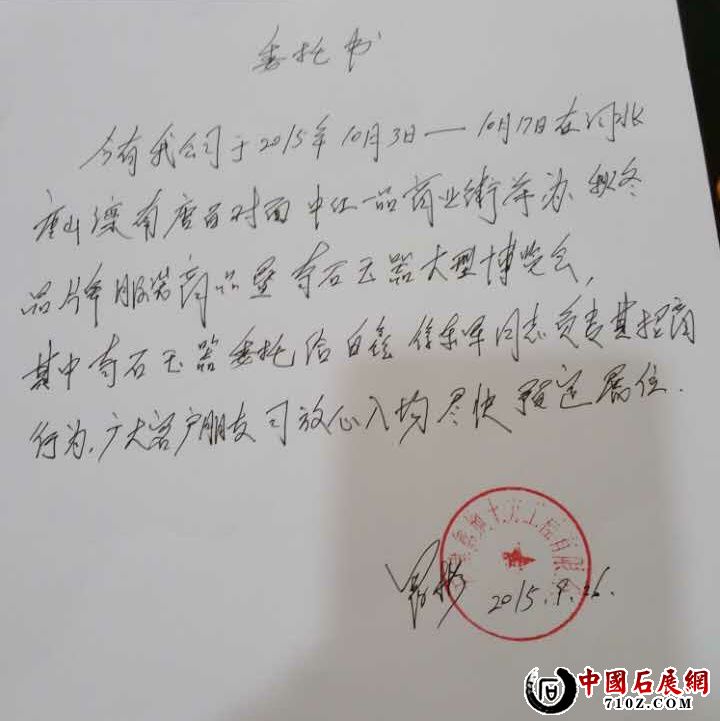 委托书
今有我公司于2015年10月3日—10月17日在河北
唐山滦南唐百对面中仕一品商业街举办秋冬
品牌服装商品暨奇石玉器大型博览会,
其中奇石玉器委托给白 同志负责其招商
行为.广大客户朋友可放心入场尽快预定展位.
工程有限
2015.9.26.
中國石展網
710Z.COM